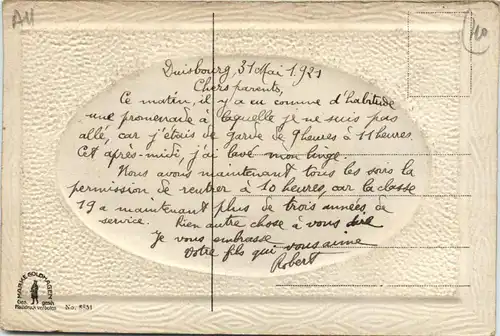 Duisbourg, 31 Mai 1921
Chers parents,
Ce matin, il y a eu comme d'habitude
une promenade à laquelle je ne suis pas
allé, car j'étais de garde de 9 heures à 11 heures.
Cet après-midi, j'ai lavé mon linge.
Nous avons maintenant tous les soirs la
permission de rentrer à 10 heures, car la classe
19 a maintenant plus de trois années de
service. Rien autre chose à vous dire
Je vous embrasse
Votre fils qui vous aime
Robert
MARKE GOLDHAGEN
Ges. gesch.
Nachdruck verboten
No. 8851